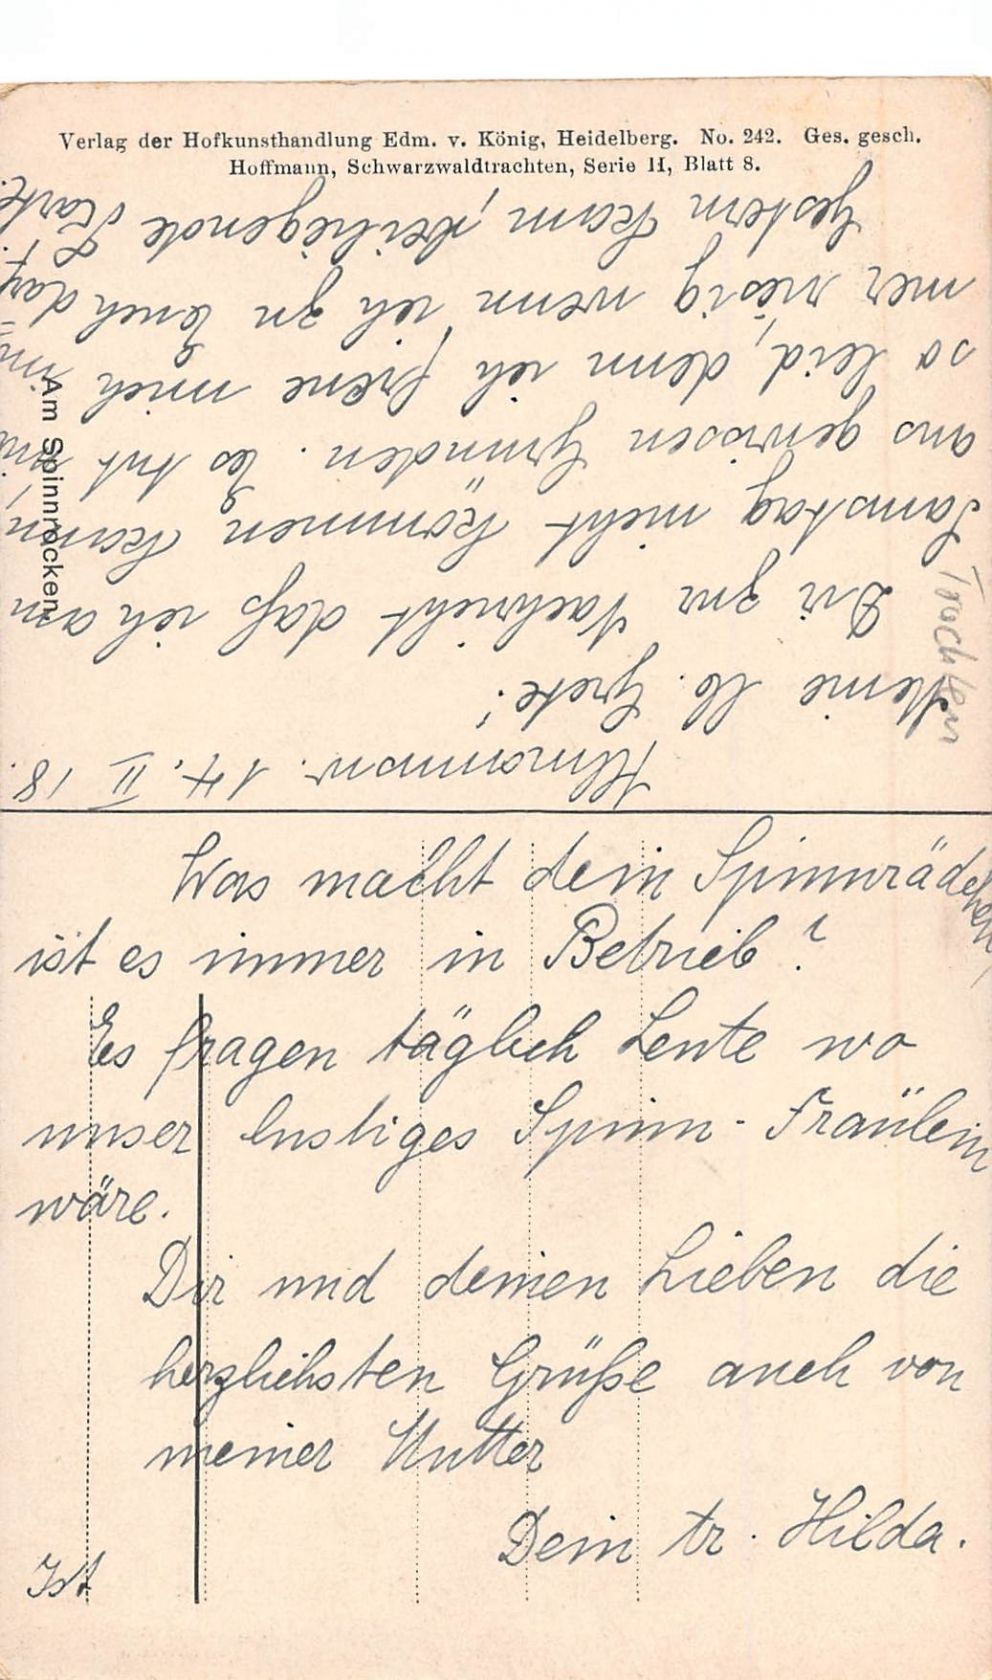 Verlag der Hofkunsthandlung Edm. v. König, Heidelberg. No. 242. Ges. gesch.
Hoffmann, Schwarzwaldtrachten, Serie II, Blatt 8.
Am Spinnrocken.
Trachten
14. II 18.
Meine lb. Grete!
Dir zur Nachricht daß ich am
Samstag nicht kommen kann,
aus gewissen Gründen. Es tut mir
so leid, denn ich freue mich im-
mer riesig wenn ich zu Euch darf.
Gestern kam, beiliegende Karte.
Was macht dein Spinnrädchen,
ist es immer in Betrieb?
Es fragen täglich Leute wo
unser lustiges Spinn-Fräulein
wäre.
Dir und deinen Lieben die
herzlichsten Grüße auch von
meiner Mutter
Dein tr. Hilda.
Ist